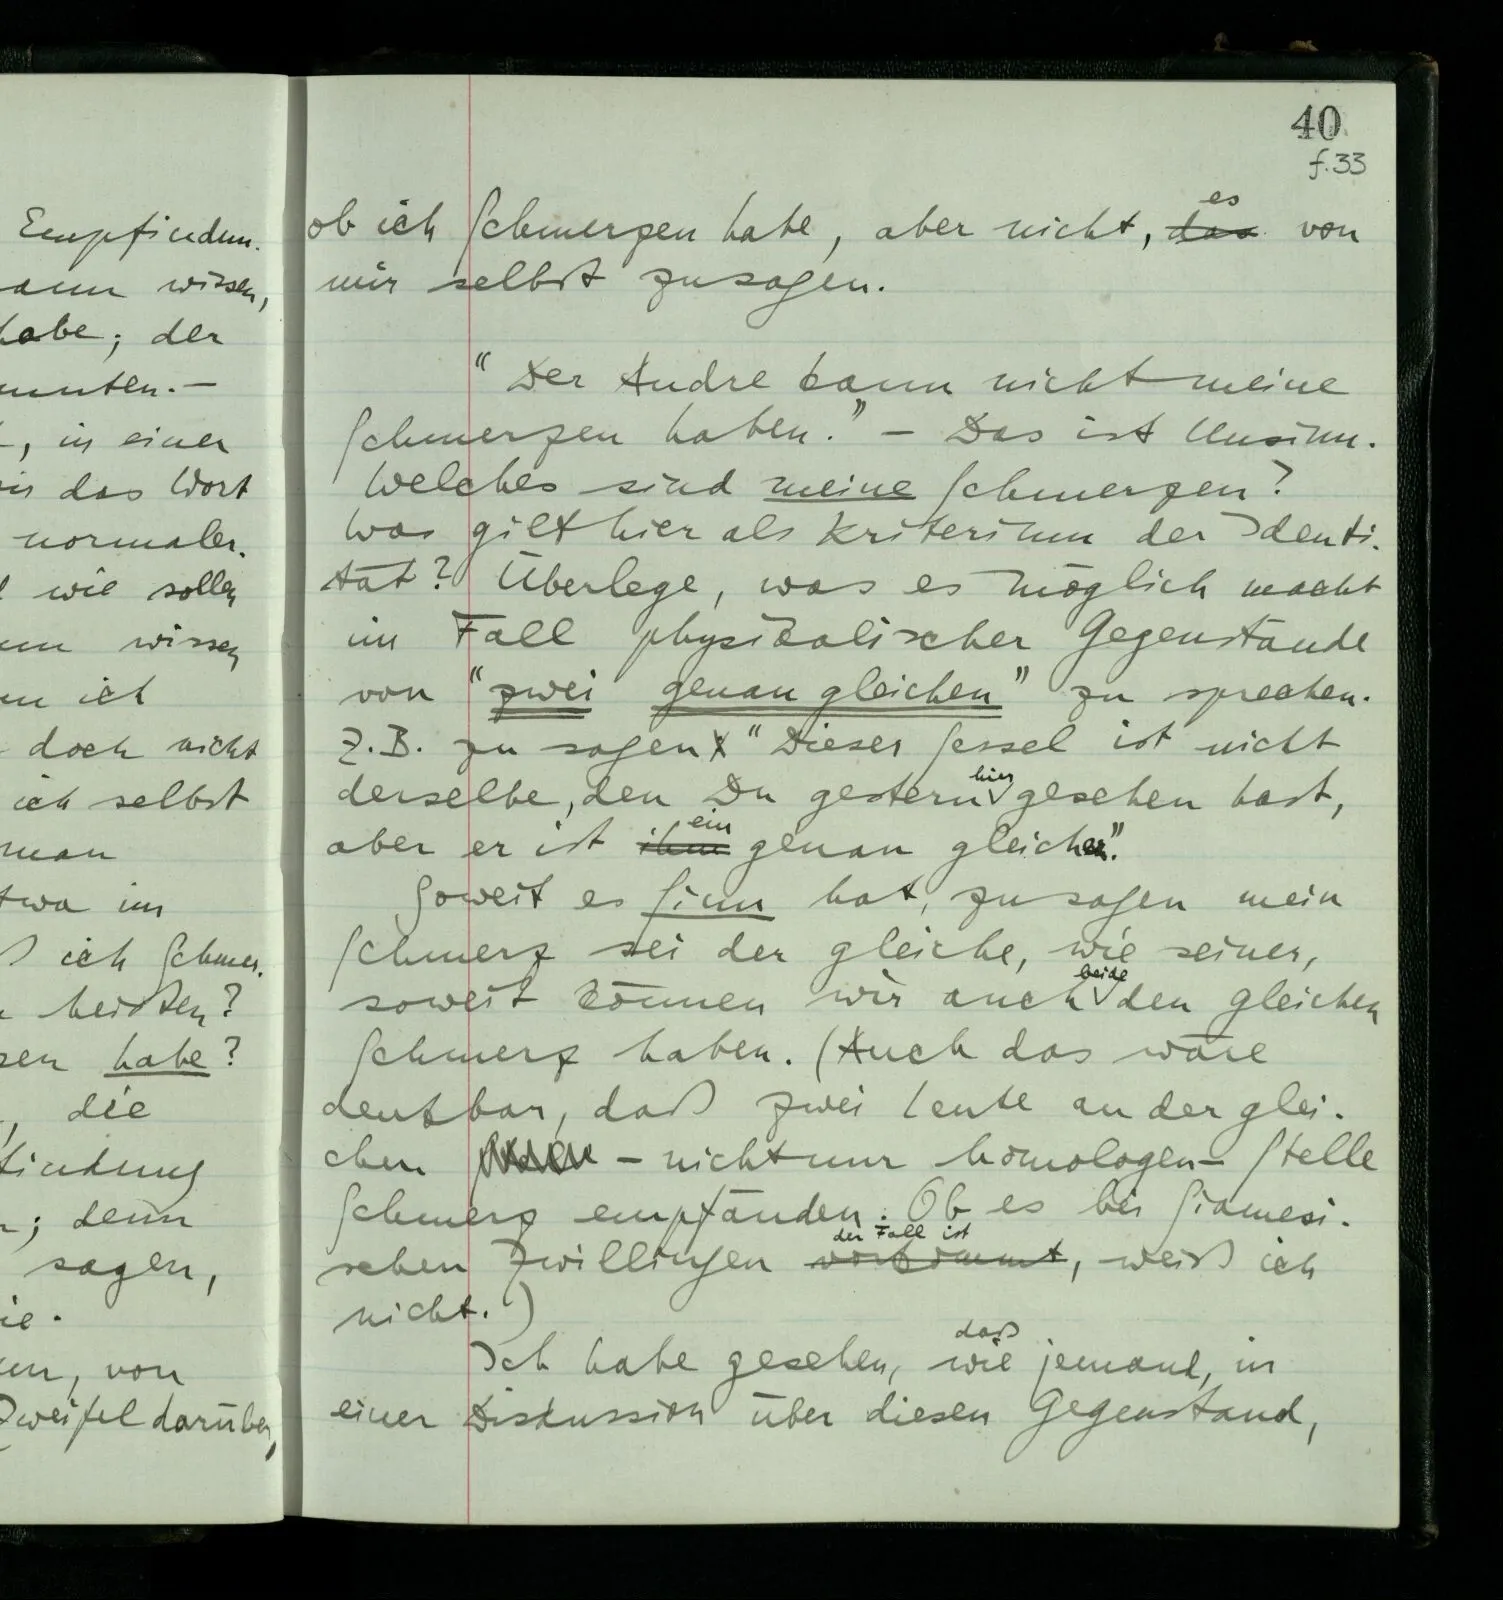 Empfindun.
ann wissen,
habe; der
nnten. —
, in einer
das Wort
normaler.
wie sollen
wissen
ich
doch nicht
ich selbst
man
twa im
ich Schmer.
heißen?
sen habe?
, die
findung
; denn
sagen,
ie.
, von
Zweifel darüber,
40
f.33
ob ich Schmerzen habe, aber nicht, ~~das~~ es von
mir selbst zu sagen.
"Der Andre kann nicht meine
Schmerzen haben." — Das ist Unsinn.
Welches sind meine Schmerzen?
Was gilt hier als Kriterium der Identi.
tät? Überlege, was es möglich macht
im Fall physikalischer Gegenstände
von "zwei genau gleichen" zu sprechen.
Z.B. zu sagen "Dieser Sessel ist nicht
derselbe, den Du gestern hier gesehen hast,
aber er ist ~~ihm~~ ein genau gleicher".
Soweit es Sinn hat, zu sagen mein
Schmerz sei der gleiche, wie seiner,
soweit können wir auch beide den gleichen
Schmerz haben. (Auch das wäre
denkbar, daß zwei Leute an der glei.
chen – nicht nur homologen – Stelle
Schmerz empfänden. Ob es bei Siamesi.
schen Zwillingen ~~vorkommt~~ der Fall ist, weiß ich
nicht.)
Ich habe gesehen, wie daß jemand, in
einer Diskussion über diesen Gegenstand,